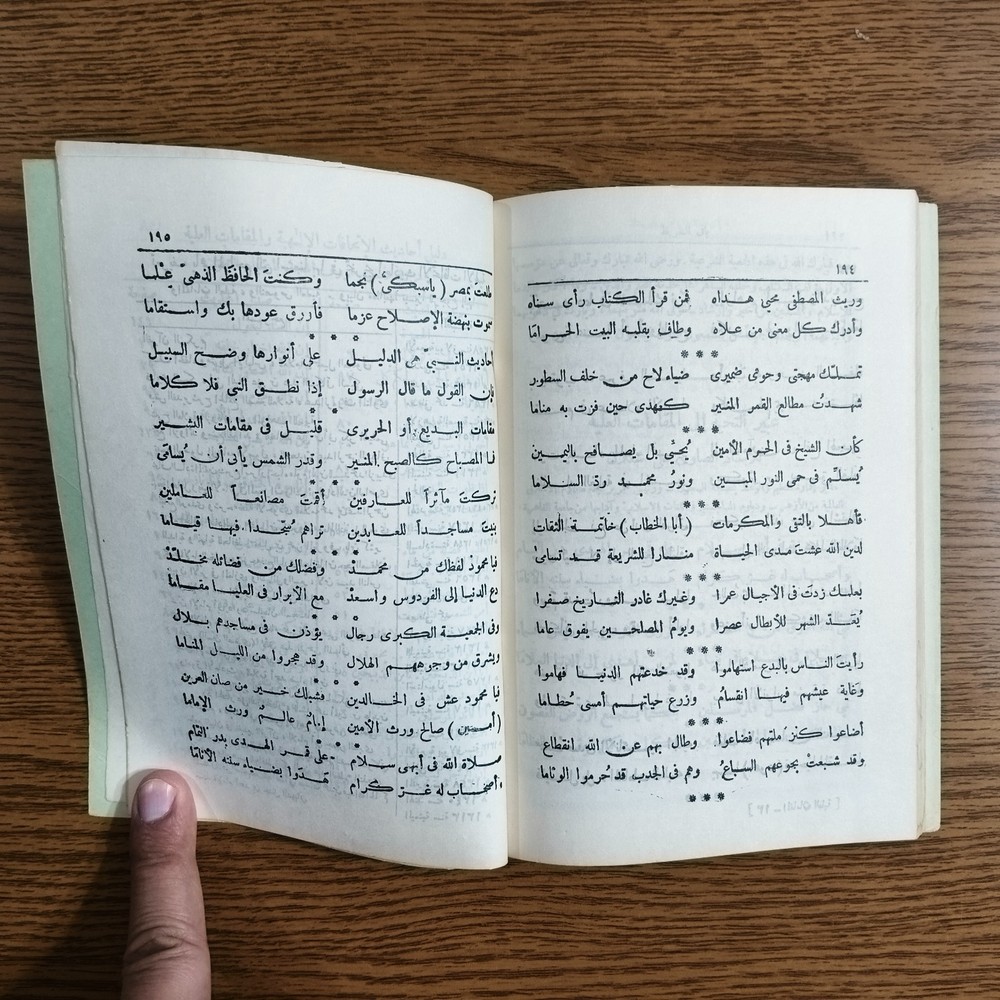 ١٩٤
وريث المصطفى محيي هداه فمن قرأ الكتاب رأى سناه
وأدرك كل معنى من علاه وطاف بقلبه البيت الحراما
***
تملك مهجتي وحوى ضميرى ضياء لاح من خلف السطور
شهدتُ مطالع القمر المنير كمهدى حين فزت به مناما
***
كأن الشيخ في الحرم الأمين يُحيَّي بل يصافح باليمين
يُسلّم في حمى النور المبين ونورُ محمد ردّ السلاما
***
فأهلا بالتقى والمكرمات (أبا الخطاب) خاتمة الثقات
لدين الله عشتَ مدى الحياة منارا للشريعة قد تسامىٰ
***
بعلمك زدتَ فى الأجيال عمرا وغيرك غادر التاريخ صفرا
يُعَدّ الشهر للأبطال عصرا ويومُ المصلحين يفوق عاما
***
رأيتَ الناس بالبدع استهاموا وقد خدعتهم الدنيا فهاموا
وغاية عيشهم فيها انقسامُ وزرع حياتهم أمسى حُطاما
***
أضاعوا كنز ملتهم فضاعوا وطال بهم عن الله انقطاع
وقد شبعتْ بجوعهم السباعُ وهم فى الجدب قد حُرموا الوئاما
***
١٩٥
طلعت بمصر (ياسبكىُّ) نجما وكنتَ الحافظَ الذهبىّ عِلْما
سموت بنهضة الإصلاح عزما فأورق عودها بك واستقاما
***
أحاديث النبىّ هى الدليل على أنوارها وضح السبيل
فإن القول ما قال الرسول إذا نطق النبى فلا كلاما
***
مقامات البديع أو الحريرى قليل فى مقامات البشير
فما المصباح كالصبح المنير وقدر الشمس يأبى أن يُسامَى
***
تركتَ مآثراً للعارفين أقمتَ مصانعاً للعاملين
بنيت مساجداً للعابدين تراهم سُجّدا فيها قياما
***
فيا محمودُ لفظك من محمدْ وفضلك من فضائله مخلّدْ
دع الدنيا إلى الفردوس واسعدْ مع الأبرار فى العليا مقاما
***
وفى الجمعية الكبرى رجال يؤذن فى مساجدهم بلال
ويشرق من وجوههم الهلال وقد هجروا من الليل المناما
***
فيا محمود عش فى الخالدين فشبلك خير من صان العرين
(أمين) صالح ورث الأمين إمامٌ عالمٌ ورث الإماما
***
صلاة الله فى أبهى سلام على قمر الهدى بدر التمام
وأصحاب له غرّ كرام هَدَوا بضياء سنته الأناما